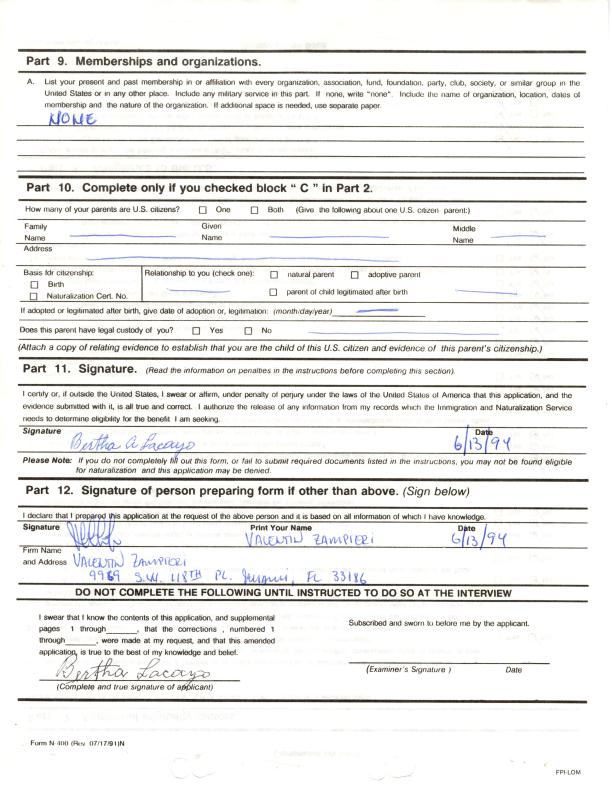 Part 9. Memberships and organizations.
A. List your present and past membership in or affiliation with every organization, association, fund, foundation, party, club, society, or similar group in the
United States or in any other place. Include any military service in this part. If none, write "none". Include the name of organization, location, dates of
membership and the nature of the organization. If additional space is needed, use separate paper.
NONE
Part 10. Complete only if you checked block " C " in Part 2.
How many of your parents are U.S. citizens? One Both (Give the following about one U.S. citizen parent:)
Family Given Middle
Name Name Name
Address
Basis fdr citizenship: Relationship to you (check one): natural parent adoptive parent
Birth
Naturalization Cert. No. parent of child legitimated after birth
If adopted or legitimated after birth, give date of adoption or, legitimation: (month/day/year)
Does this parent have legal custody of you? Yes No
(Attach a copy of relating evidence to establish that you are the child of this U.S. citizen and evidence of this parent's citizenship.)
Part 11. Signature. (Read the information on penalties in the instructions before completing this section).
I certify or, if outside the United States, I swear or affirm, under penalty of perjury under the laws of the United States of America that this application, and the
evidence submitted with it, is all true and correct. I authorize the release of any information from my records which the Immigration and Naturalization Service
needs to determine eligibility for the benefit I am seeking.
Signature Date
Bertha A Lacayo 6/13/94
Please Note: If you do not completely fill out this form, or fail to submit required documents listed in the instructions, you may not be found eligible
for naturalization and this application may be denied.
Part 12. Signature of person preparing form if other than above. (Sign below)
I declare that I prepared this application at the request of the above person and it is based on all information of which I have knowledge.
Signature Print Your Name Date
VALENTIN ZAMPIERI 6/13/94
Firm Name
and Address VALENTIN ZAMPIERI
9969 S.W. 118TH PL. Miami, FL 33186
DO NOT COMPLETE THE FOLLOWING UNTIL INSTRUCTED TO DO SO AT THE INTERVIEW
I swear that I know the contents of this application, and supplemental
pages 1 through , that the corrections , numbered 1
through , were made at my request, and that this amended
application, is true to the best of my knowledge and belief.
Subscribed and sworn to before me by the applicant.
Bertha Lacayo
(Complete and true signature of applicant)
(Examiner's Signature ) Date
Form N-400 (Rev. 07/17/91)N
FPI-LOM